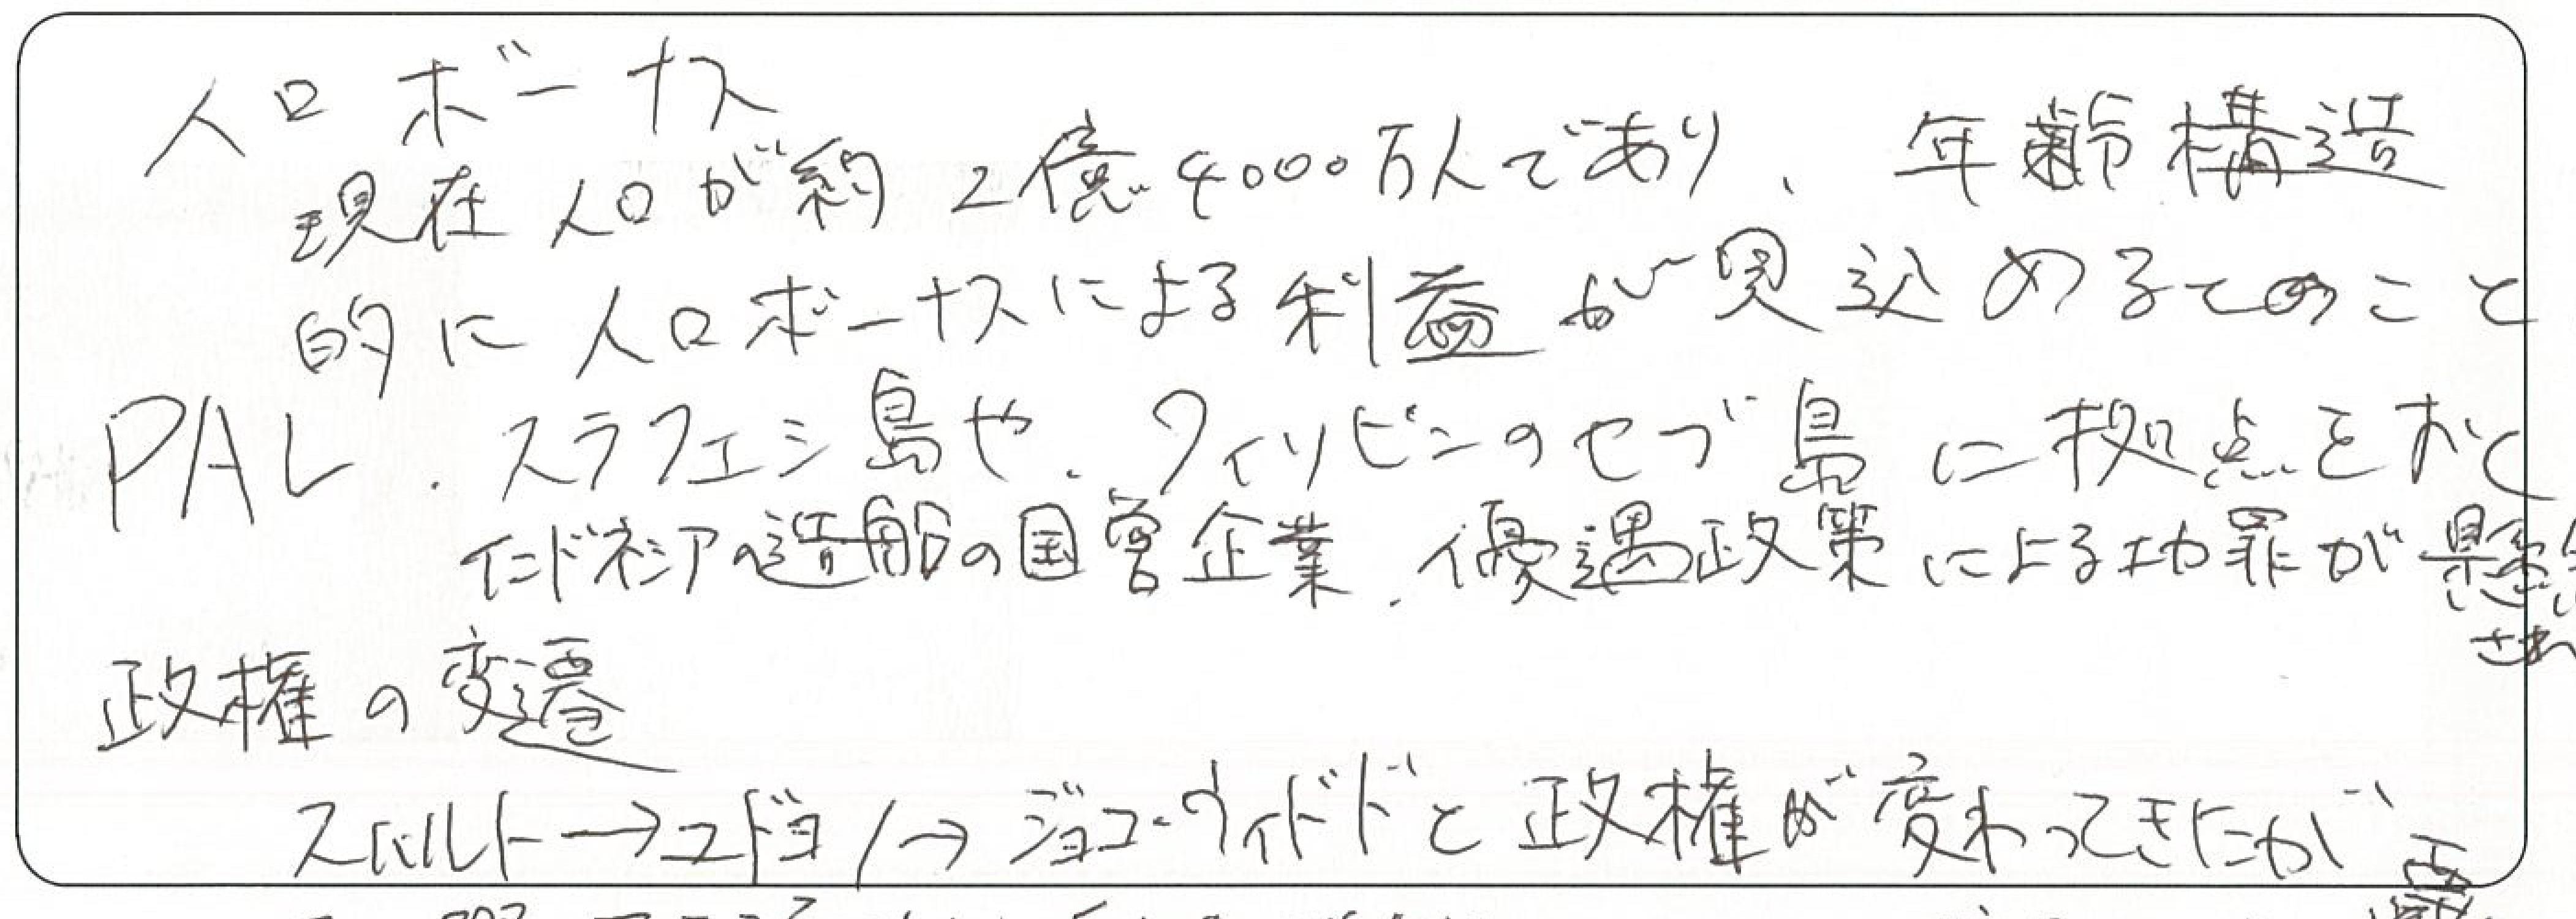 人口ボーナス
現在人口が約2億4000万人であり、年齢構造
的に人口ボーナスによる利益が見込めるとのこと
PAL. スラフェシ島や、フィリピンのセブ島に拠点をおく
インドネシアの造船の国営企業、優遇政策による功罪が懸念
され
政権の変遷
スハルト→ユドヨノ→ジョコ・ウィドドと政権が変わってきたが